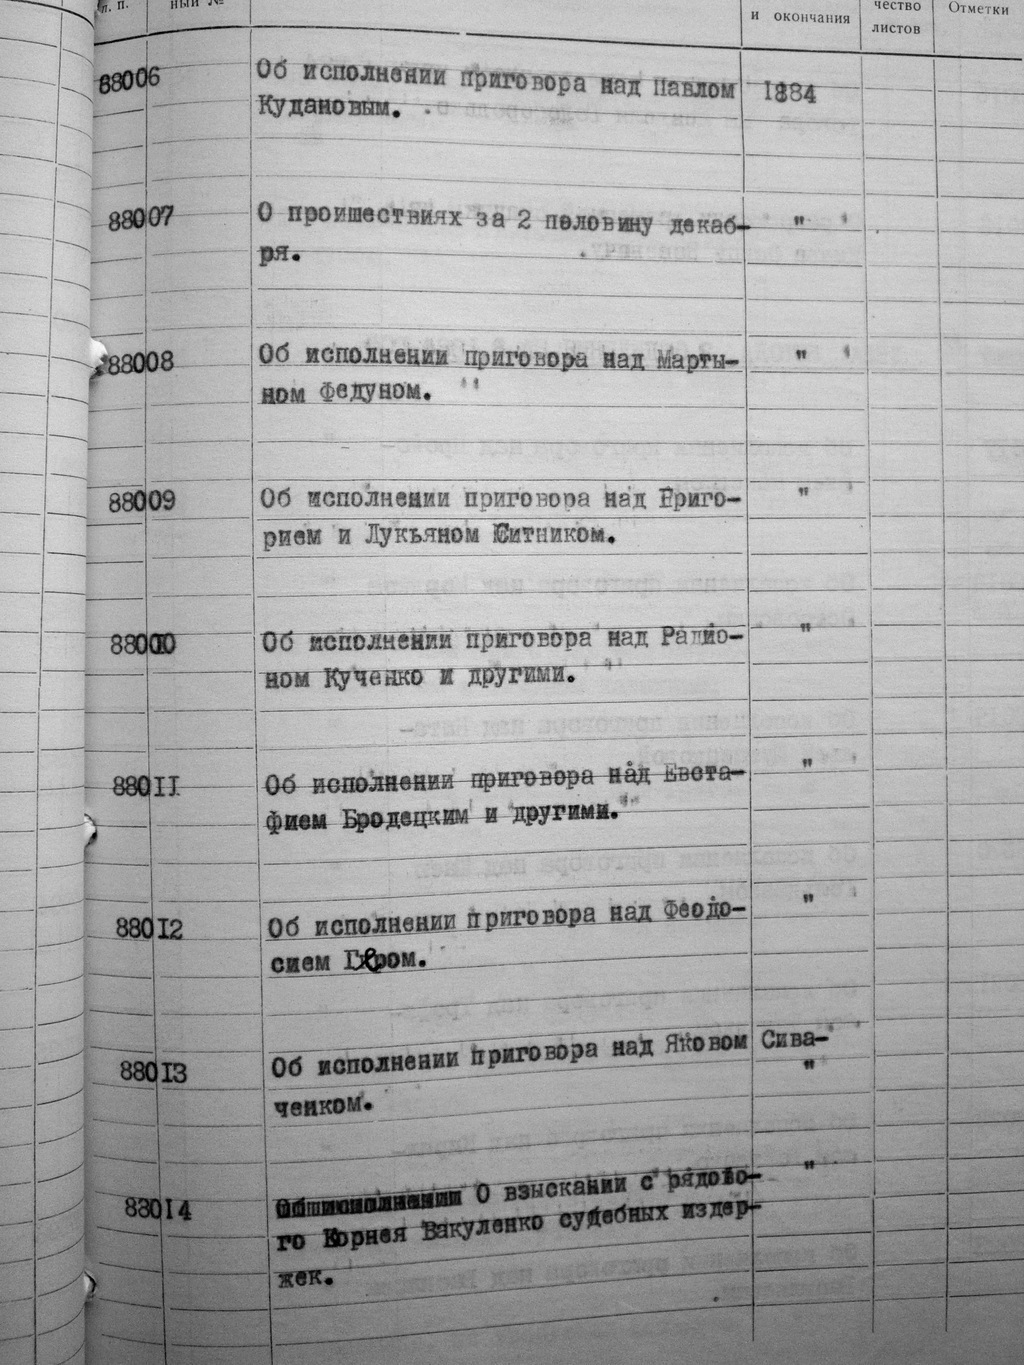 л. п.
ный №
и окончания
чество
листов
Отметки
88006 Об исполнении приговора над Павлом 1884
Кудановым.
88007 О проишествиях за 2 половину декаб- "
ря.
88008 Об исполнении приговора над Марты- "
ном Федуном.
88009 Об исполнении приговора над Григо- "
рием и Лукьяном Ситником.
880010 Об исполнении приговора над Радио- "
ном Кученко и другими.
88011 Об исполнении приговора над Евста- "
фием Бродецким и другими.
88012 Об исполнении приговора над Феодо- "
сием
88013 Об исполнении приговора над Яковом Сива-
ченком. "
88014 О взыскании с рядово- "
го Корнея Вакуленко судебных издер-
жек.